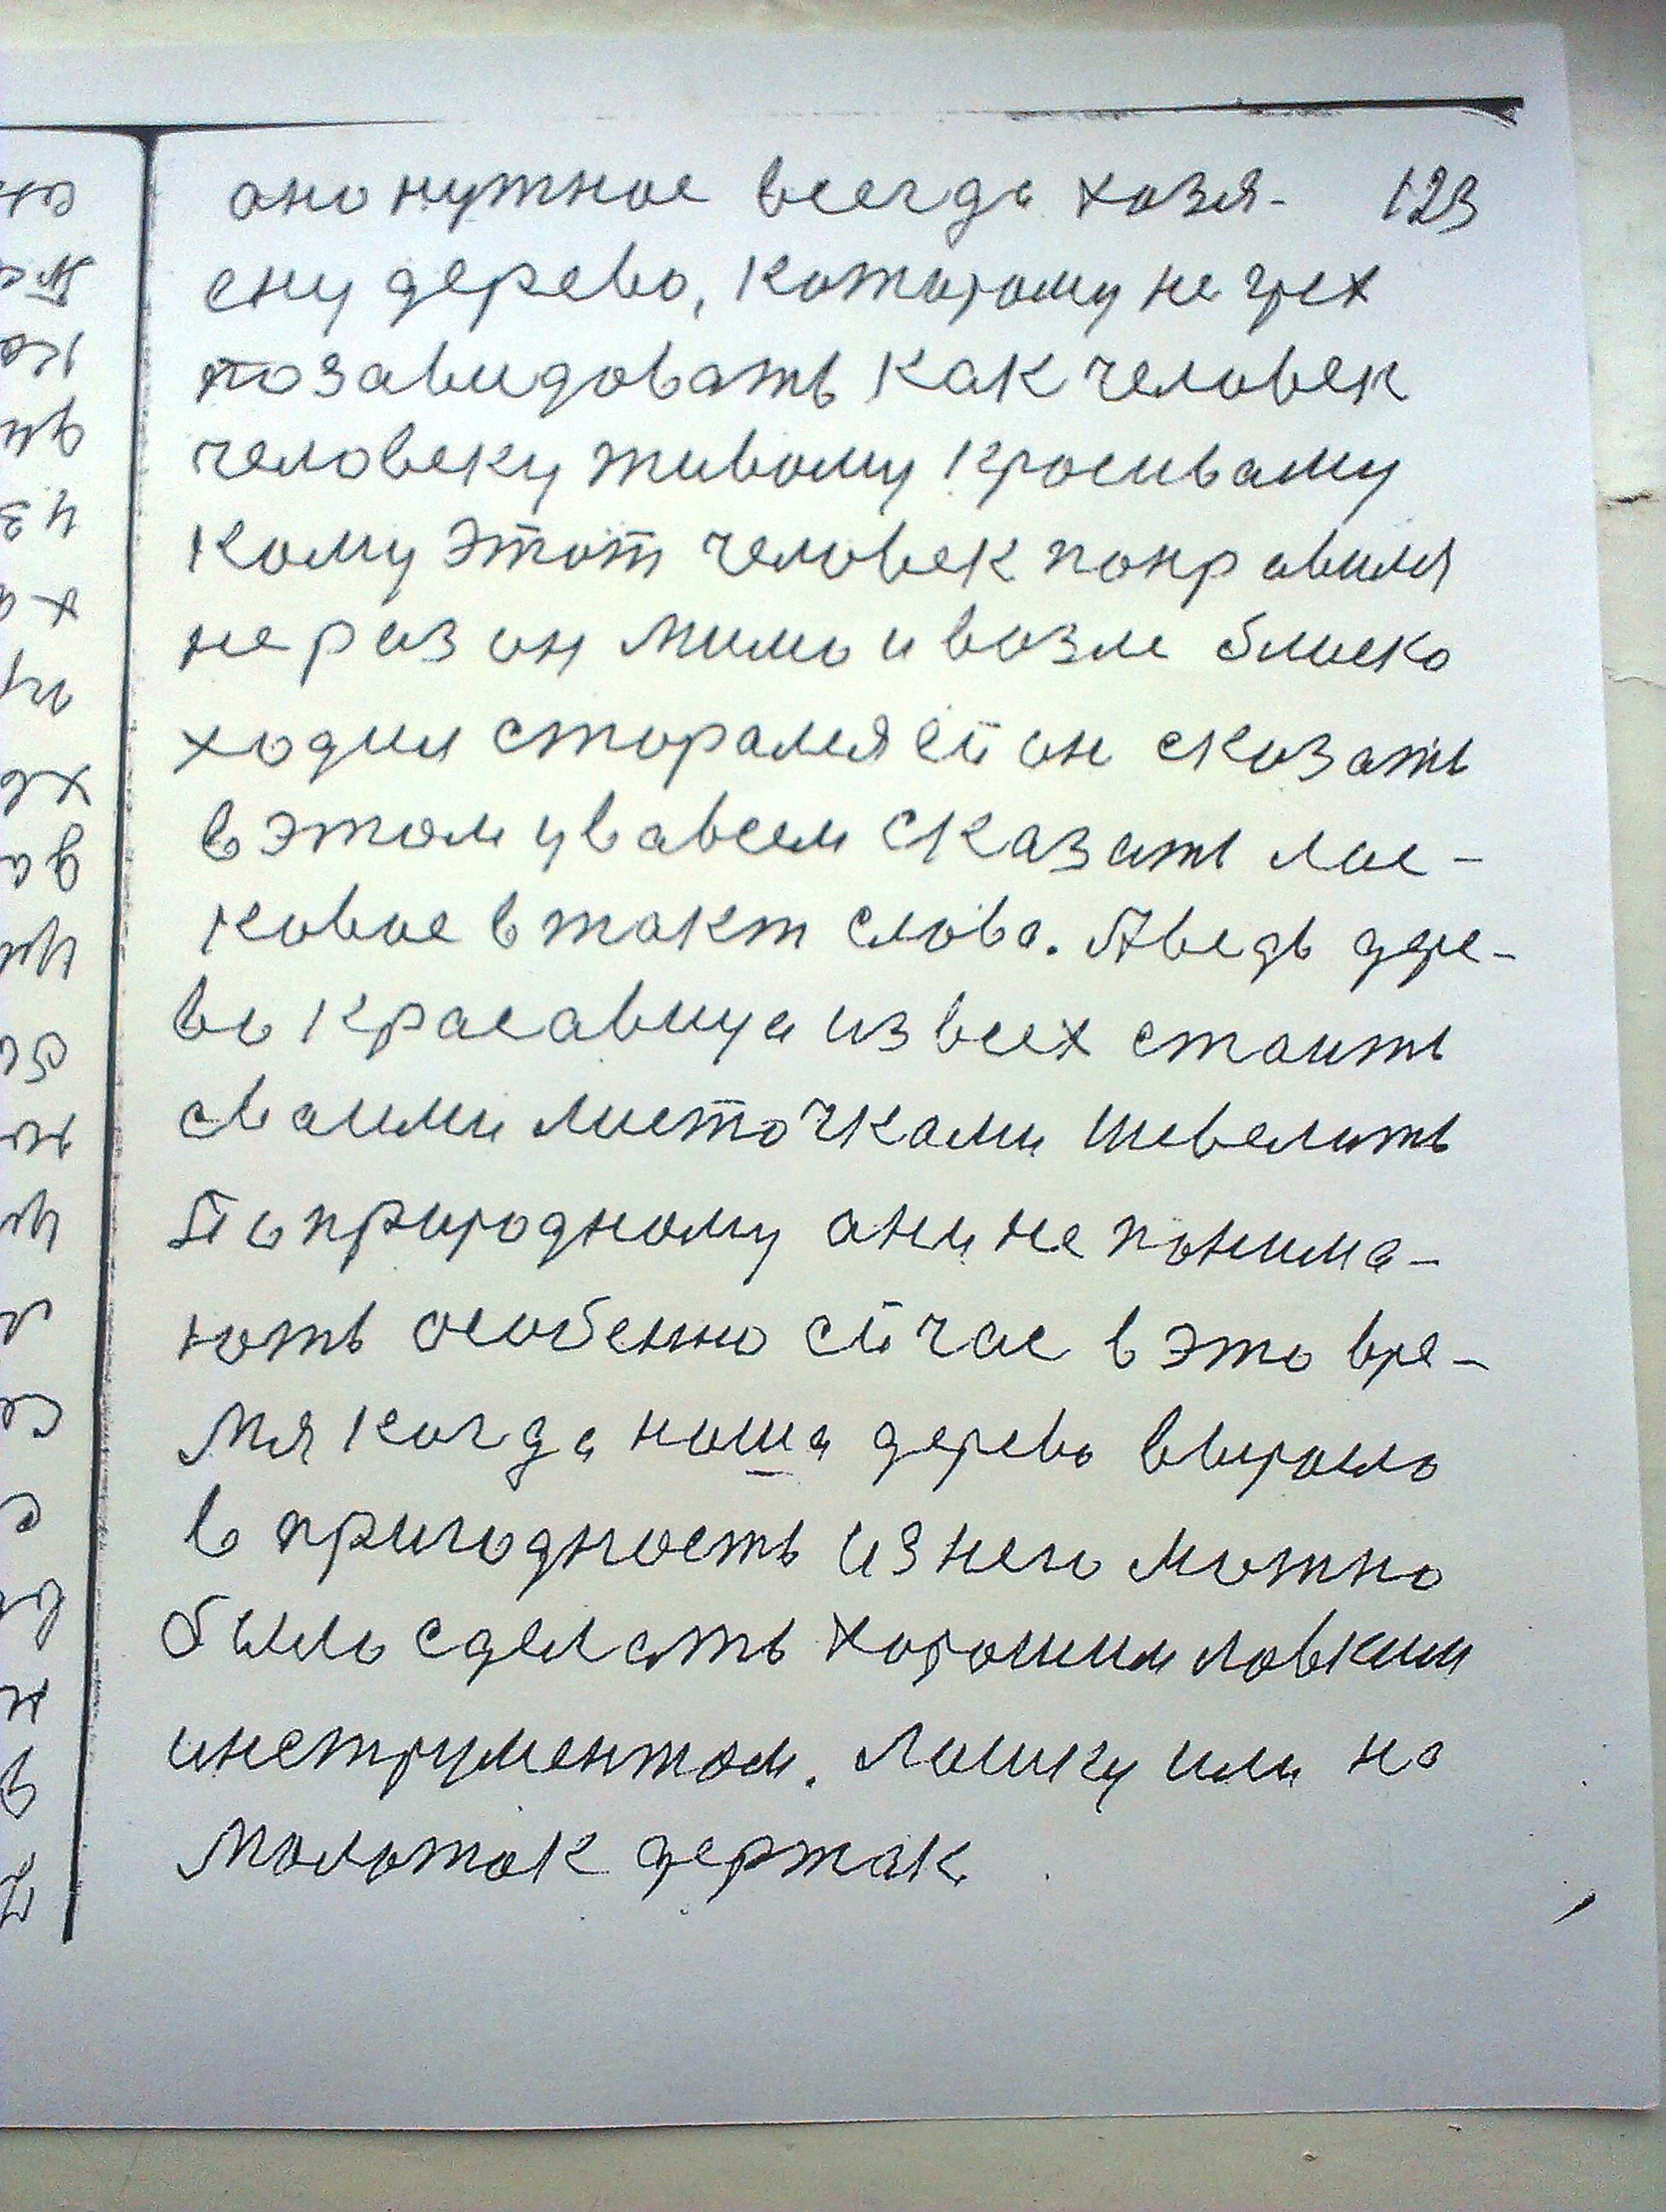 оно нужное всегда хозя- 123
ену дерево, которому не грех
позавидовать как человек
человеку живому красиваму
кому этот человек понравился
не раз он мимо и возле блиско
ходил старался ей он сказать
в этом увавсем сказать лас-
ковое в такт слово. А ведь дере-
во красавица из всех стоить
сваими листочками шевелить
По природному они не понима-
ють особенно сичас в это вре-
мя когда наша дерево выросло
в пригодность из него можно
было сделать хорошим ловким
инструментом. Лошку или на
молоток держак